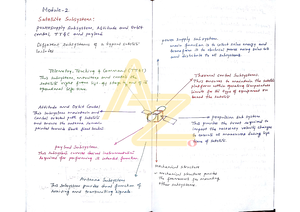 Module-2
Satellite Subsystems:
power supply Subsystem, Attitude and Orbit
control, TT&C and payload
Different Subsystems of a typical satellite
includes
Telemetry, Tracking & Command (TT&C)
This Subsystem monitors and control the
satellite right from the
operational life
Attitude and Orbit Control
This Subsystem
control orbital path of satellite
and ensure the antennas remain
pointed towards Earth
payload Subsystem
This subsystem carries
Required for performing its intended function
Antenna Subsystem
This Subsystem provides
and transmitting signals
power supply Subsystem
main function is to collect solar energy and
transform it to electrical power
and distribute to all subsystems.
Thermal control Subsystem
This ensures to maintain the satellite
platform within operating temperature
limits for all types of equipment on
board the satellite
propulsion Sub system
This provides the thrust required to
impart the necessary velocity changes
to execute all maneuvers during life
span of satellite.
Mechanical structure
Mechanical structure provides
the framework for mounting
other subsystems.